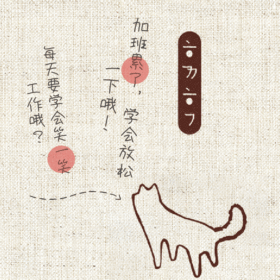 加班累了，
学会放松
一下哦！
每天要学会笑一笑
工作哦？